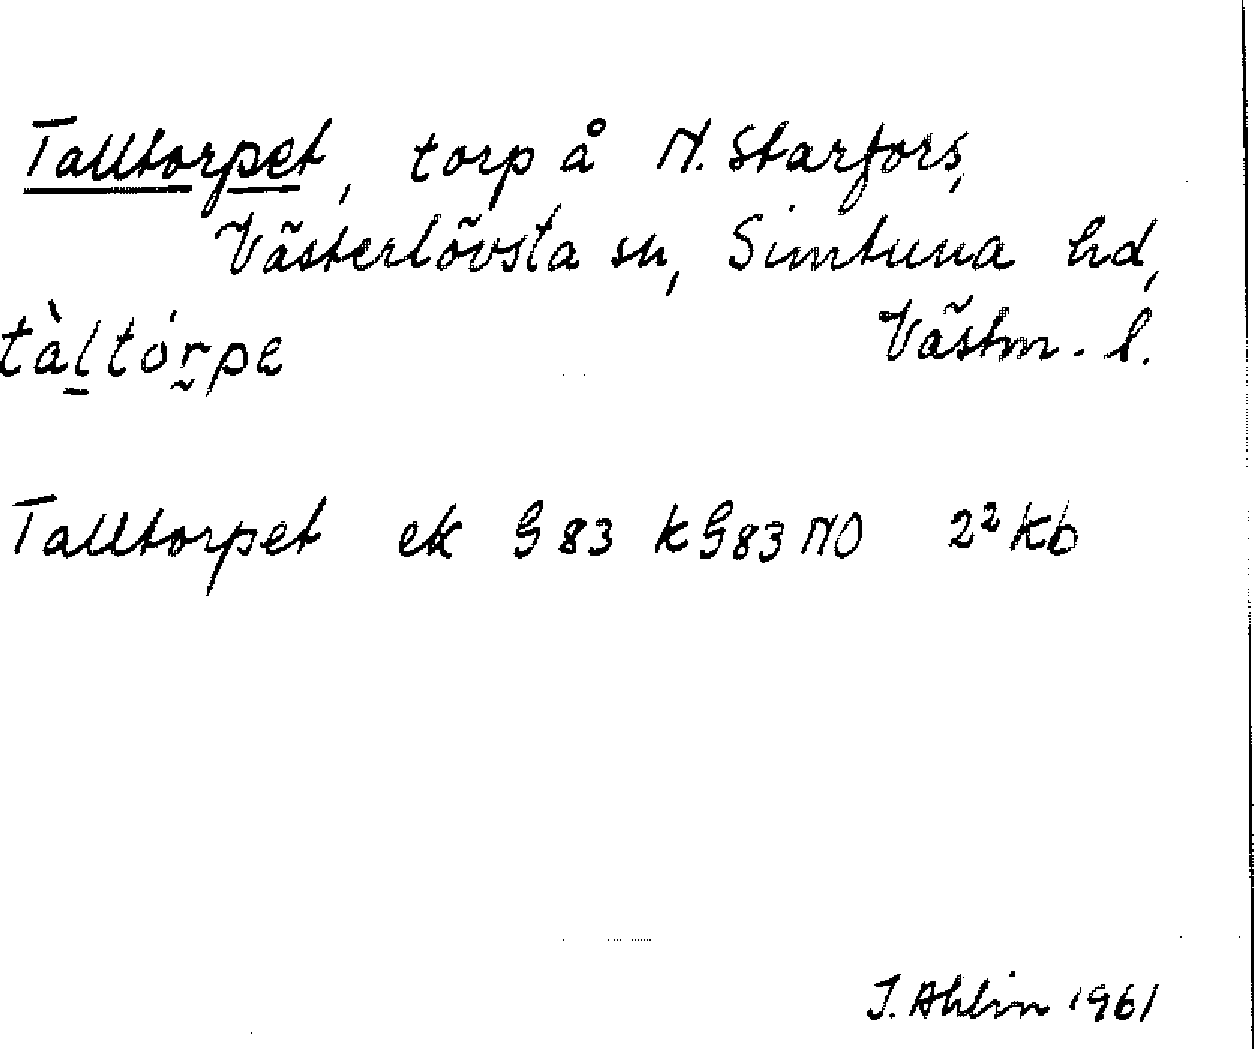 Talltorpet, torp å N. Starfors,
Västerlövsta sn, Simtuna hd,
Västm. l.
tàl̠tór̰pe
Talltorpet ek G 83 KG83 NO 2² Kb
J. Ahlin 1961